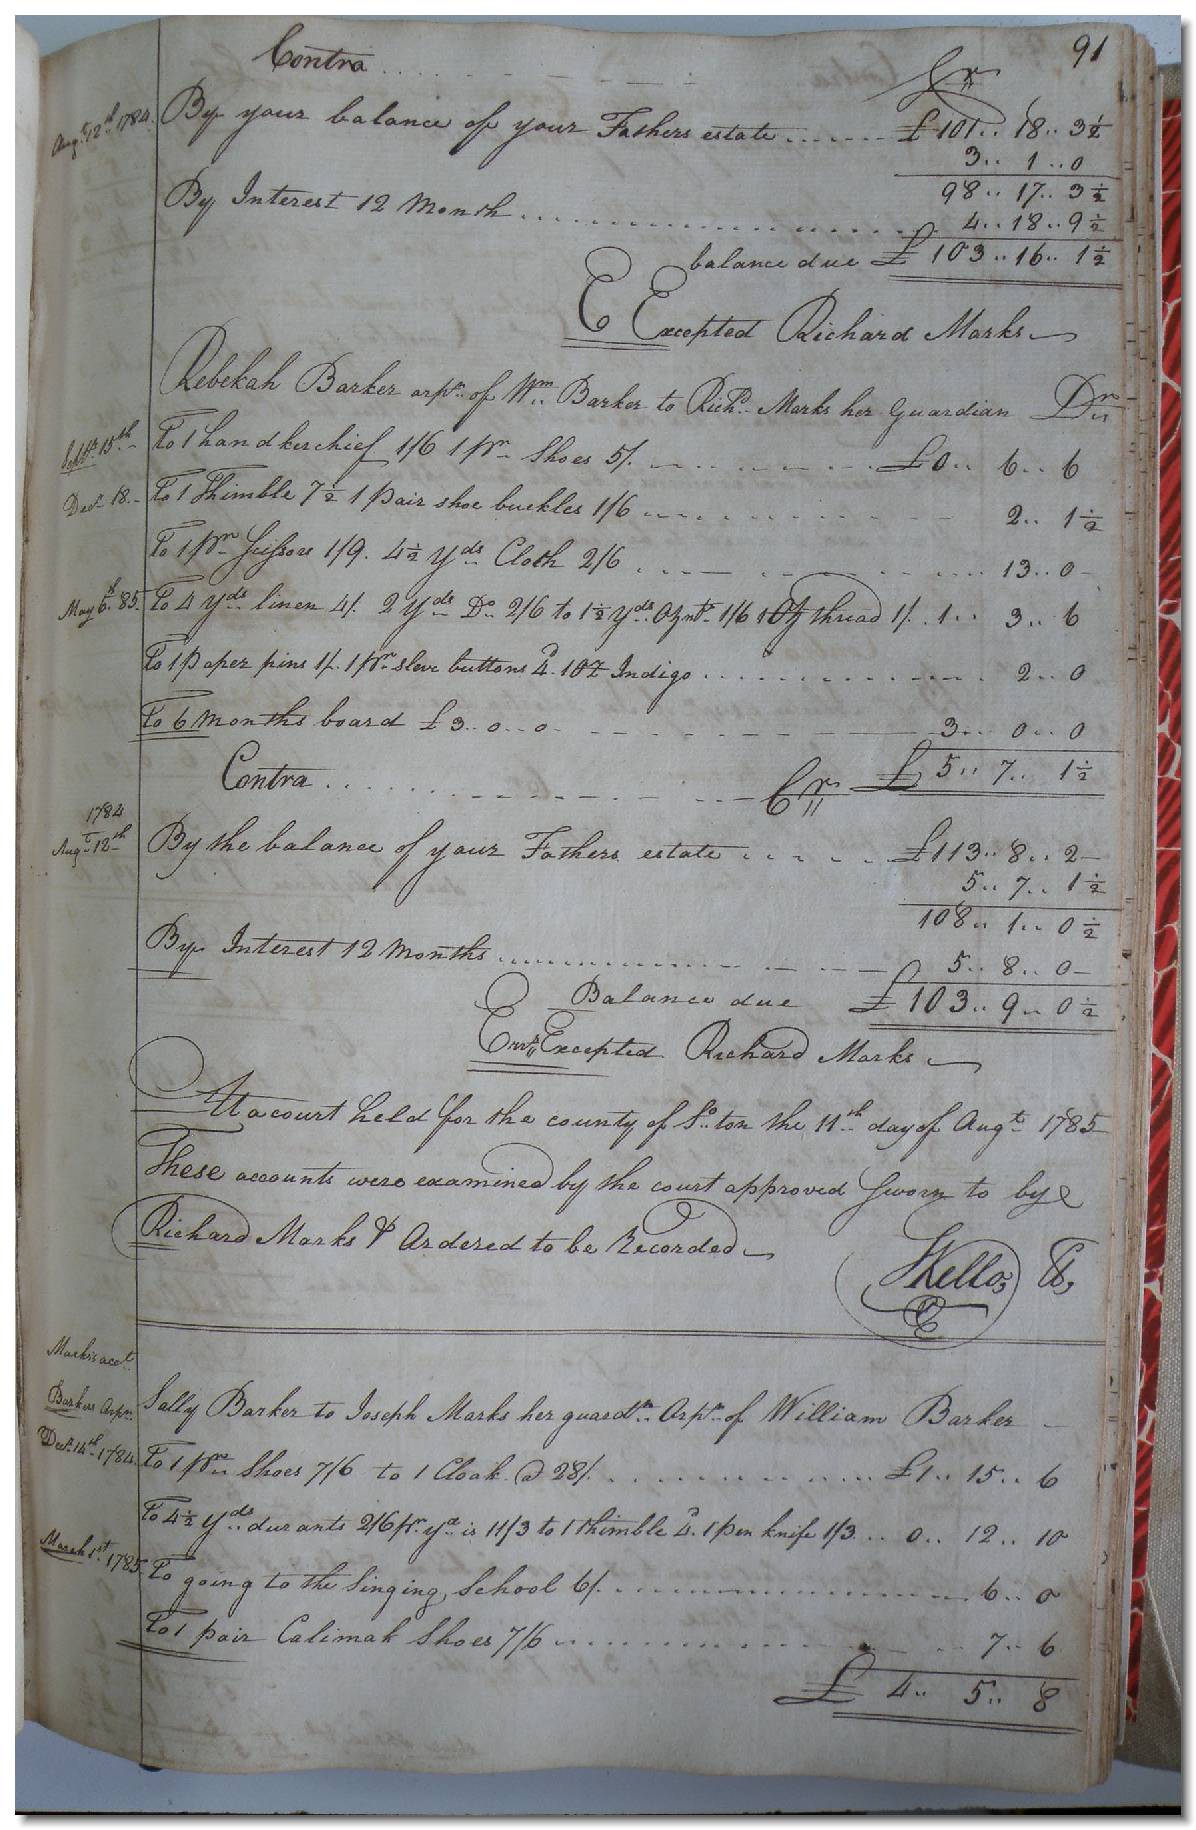 91
Contra Cr
Augt 12th 1784. By your balance of your Fathers estate £101.. 18.. 3½
3.. 1.. 0
98.. 17.. 3½
By Interest 12 Month 4.. 18.. 9½
balance due £103.. 16.. 1½
E Excepted Richard Marks
Rebekah Barker orpn of Wm Barker to Richd Marks her Guardian Dr
Septr 15th To 1 handkerchief 1/6 1 pr Shoes 5/. £0.. 6.. 6
Decr 18. To 1 Thimble 7½ 1 pair shoe buckles 1/6 2.. 1½
To 1 pr Scissors 1/9. 4½ yds Cloth 2/6 13.. 0
May 6th 85. To 4 yds linen 4/. 2 yds Do 2/6 to 1½ yds Oznb 1/6 1 Oz thread 1/. 1.. 3.. 6
To 1 paper pins 1/. 1 pr sleve buttons d4. 1 OZ Indigo 2.. 0
To 6 Months board £3..0..0 3.. 0.. 0
£5.. 7.. 1½
Contra Cr
1784
Augt 12th By the balance of your Fathers estate £113.. 8.. 2
5.. 7.. 1½
108.. 1.. 0½
By Interest 12 Months 5.. 8.. 0
Balance due £103.. 9.. 0½
Errs Excepted Richard Marks
At a court held for the county of So.ton the 11th day of Augt 1785
These accounts were examined by the court approved Sworn to by
Richard Marks & Ordered to be Recorded
Kello
Marks's acct
Barkers Orpn Sally Barker to Joseph Marks her guardn Orpn of William Barker
Decr 14th 1784. To 1 pr Shoes 7/6 to 1 Cloak @ 28/. £1.. 15.. 6
To 4½ yds durants 2/6 pr yd is 11/3 to 1 thimble d4. 1 pen knife 1/3 0.. 12.. 10
March 1st 1785. To going to the Singing School 6/. 6.. 0
To 1 pair Calimak Shoes 7/6 7.. 6
£4.. 5.. 8